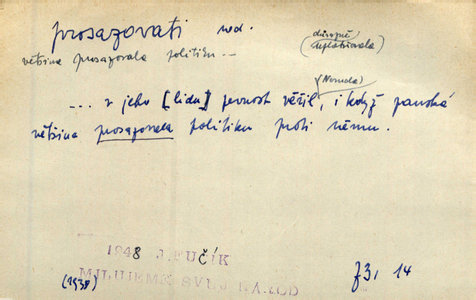 prosazovati ned.
většina prosazovala politiku --
(důvodně
uplatňovala)
(Neruda)
... v jeho [lidu] pevnost věřil, i když panská
většina prosazovala politiku proti němu.
1948 J. FUČÍK
MILUJEME SVŮJ NÁROD
(1938)
f31 14